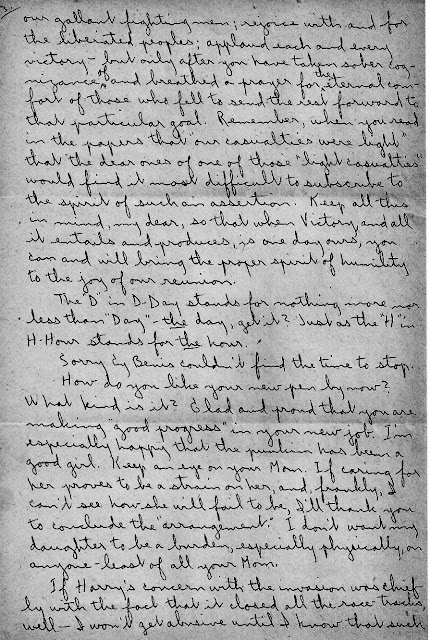 our gallant fighting men; rejoice with and for
the liberated peoples; applaud each and every
victory - but only after you have taken sober cog-
nizance of, and breathed a prayer for the eternal com-
fort of those who fell to send the rest forward to
that particular goal. Remember, when you read
in the papers that "our casualties were light"
that the dear ones of one of those "light casualties"
would find it most difficult to subscribe to
the spirit of such an assertion. Keep all this
in mind, my dear, so that when Victory, and all
it entails and produces, is one day ours, you
can and will bring the proper spirit of humility
to the joy of our reunion.
The "D" in D-Day stands for nothing more nor
less than "Day" - the day, get it? Just as the "H" in
H-Hour stands for the hour.
Sorry Ey Benis couldn't find the time to stop.
How do you like your new pen by now?
What kind is it? Glad and proud that you are
making "good progress" in your new job. I'm
especially happy that the punkin has been a
good girl. Keep an eye on your Mom. If caring for
her proves to be a strain on her, and, frankly, I
can't see how she will fail to be, I'll thank you
to conclude the "arrangement." I don't want my
daughter to be a burden, especially physically, on
anyone - least of all your Mom.
If Harry's concern with the invasion was chief-
ly with the fact that it closed all the race-tracks,
well - I won't get abusive until I know that such